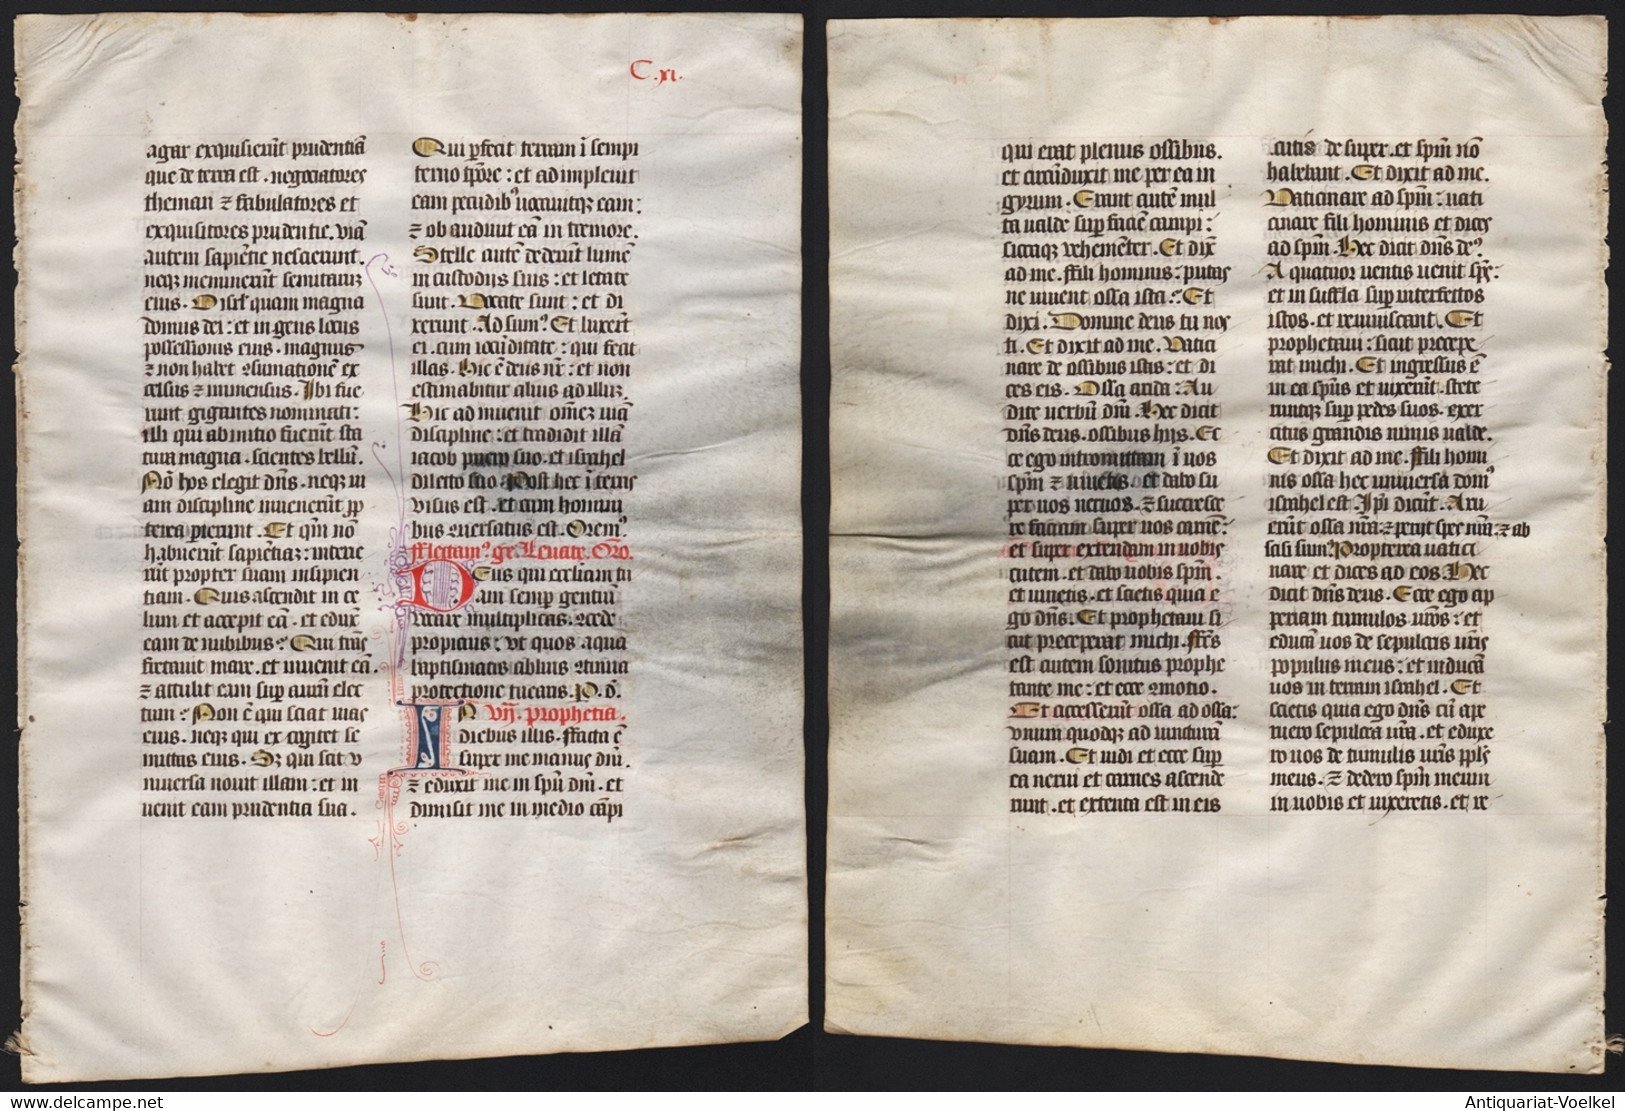 C.xi.
agar exquisierūt prudentiā
que de terra est. negociatores
theman ⁊ fabulatores et
exquisitores prudentie. viā
autem sapiētie nescierunt.
neqꝫ meminerunt semitarūꝫ
eius. O isrl' quam magna
domus dei : et ingens locus
possessionis eius. magnus
⁊ non habet ꝯsumationē ex
celsus ⁊ immensus. Ibi fue
runt gigantes nominati:
illi qui ab initio fuerūt sta
tura magna. scientes bellū.
Nō hos elegit dn̄s. neqꝫ vi
am discipline inuenerūt ꝓp
terea perierunt. Et qm̄ nō
habuerūt sapiētiaꝫ: interie
rūt propter suam insipien
tiam. Quis ascendit in ce
lum et accepit eā. et edux̄
eam de nubibus: Qui trāns
fretauit mare. et inuenit eā.
⁊ attulit eam sup aurū elec
tum: Non ē qui sciat uias
eius. neqꝫ qui excogitet se
mitas eius. Sꝫ qui scit v
niuersa nouit illam: et in
uenit eam prudentia sua.
Qui ꝑfecit terram ī sempi
terno tp̄ore: et adimpleuit
eam pecudibꝰ uocauitqꝫ eam:
⁊ obaudiuit eā in tremore.
Stelle autē dederūt lumē
in custodijs suis: et letate
sunt. Vocate sunt: et di
xerunt. Adsumꝰ. Et luxerūt
ei. cum iocūditate: qui fecit
illas. Hic ē deus nr̄: et non
estimabitur alius ad illuꝫ.
Hic adinuenit om̄eꝫ uiā
discipline: et tradidit illā
iacob puero suo. et israhel
dilecto suo Post hec ī terris
visus est. et cum homini
bus ꝯuersatus est. Oremꝰ.
fflectamꝰ ge. Leuate. Oro.
DEus qui eccliam tu
am semp gentiū
vocacione multiplicas. ꝯcede
propicius: vt quos aqua
baptismatis abluis ꝯtinua
protectione tuearis. P. d.
IN vij. prophetia.
diebus illis. ffacta ē
super me manus dn̄i.
⁊ eduxit me in spū dn̄i. et
dimisit me in medio cāpi
qui erat plenus ossibus.
et circūduxit me per ea in
gyrum. Erant autē mul
ta ualde sup faciē campi:
siccaqꝫ vehemēter. Et dix̄
ad me. ffili hominis: putas
ne uiuent ossa ista: Et
dixi. Domine deus tu nos
ti. Et dixit ad me. Vatici
nare de ossibus istis: et di
ces eis. Ossa arida: Au
dite uerbū dn̄i. Hec dicit
dn̄s deus. ossibus hijs. Ec
ce ego intromittam ī uos
sp̄m ⁊ uiuetis. et dabo su
per uos neruos. ⁊ succresce
re faciam super uos carnē:
et super extendam in uobis
cutem. et dabo uobis spm̄.
et uiuetis. et scietis quia e
go dn̄s. Et prophetaui si
cut preceperat michi. ffc̄s
est autem sonitus prophe
tante me: et ecce ꝯmotio.
Et accesserūt ossa ad ossa:
vnum quodqꝫ ad iuncturā
suam. Et uidi et ecce sup
ea nerui et carnes ascende
runt. et extenta est in eis
cutis desuper. et spm̄ nō
habebant. Et dixit ad me.
Vaticinare ad spm̄: uati
cinare fili hominis et dices
ad spm̄. Hec dicit dn̄s deꝰ.
A quatuor uentis ueni sp̄s:
et insuffla sup interfectos
istos. et reuiuiscant. Et
prophetaui: sicut precepe
rat michi. Et ingressus ē
in ea sp̄us et uixerūt. stete
runtqꝫ sup pedes suos. exer
citus grandis nimis ualde.
Et dixit ad me. ffili homi
nis ossa hec vniuersa domꝰ
israhel est. Ip̄i dicūt. Aru
erūt ossa nr̄a: ⁊ perijt spes nr̄a: ⁊ ab
scisi sumꝰ. Propterea uatici
nare et dices ad eos. Hec
dicit dn̄s deus. Ecce ego ap
periam tumulos ur̄os: et
educā uos de sepulcris ur̄is
populus meus: et inducā
uos in terram israhel. Et
scietis quia ego dn̄s cū ape
ruero sepulcra ur̄a. et eduxe
ro uos de tumulis ur̄is ppl̄s
meus. ⁊ dedero spm̄ meum
in uobis et uixeretis. et re
Antiquariat-Voelkel
www.delcampe.net